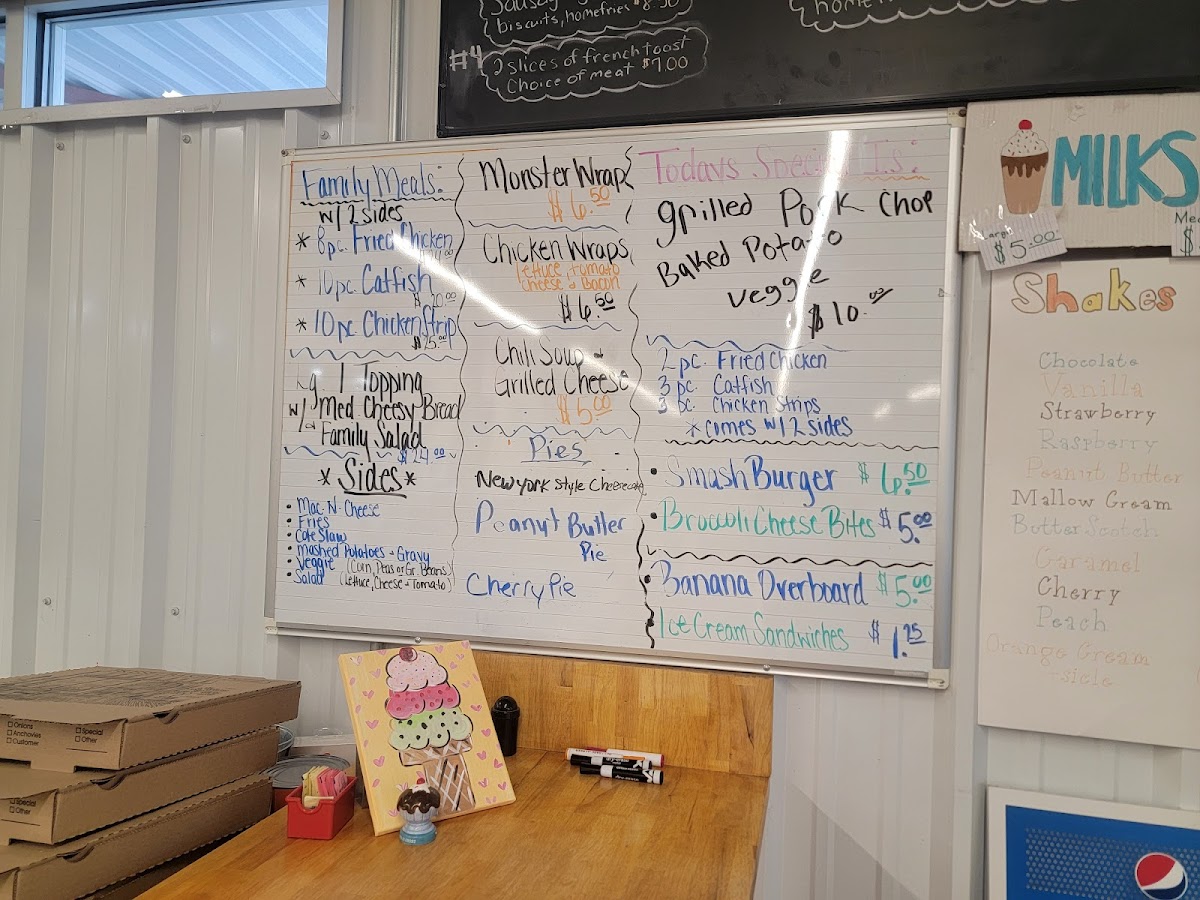 biscuits, homefries
#4
2 slices of french toast
Choice of meat $7.00
Family Meals:
w/ 2 sides
* 8pc. Fried Chicken
* 10pc. Catfish
$20.00
* 10pc. Chicken Strip
$25.00
Lg. 1 Topping
w/ Med Cheesy Bread
Family Salad
$24.00
* Sides *
• Mac-N-Cheese
• Fries
• Cole Slaw
• Mashed Potatoes + Gravy
• Veggie (Corn, Peas or Gr. Beans)
• Salad (Lettuce, Cheese + Tomato)
Monster Wrap
$6.50
Chicken Wraps
lettuce, tomato
cheese & Bacon
$6.50
Chili Soup +
Grilled Cheese
$5.00
Pies
New York Style Cheesecake
Peanut Butter
Pie
Cherry Pie
Todays Special Is:
grilled Pork Chop
Baked Potato
veggie
$10.00
2 pc. Fried Chicken
3 pc. Catfish
3 pc. Chicken Strips
* comes w/ 2 sides
• Smash Burger $6.50
• Broccoli Cheese Bites $5.00
• Banana Overboard $5.00
Ice Cream Sandwiches $1.25
MILKS
Large
$5.00
Me
$
Shakes
Chocolate
Vanilla
Strawberry
Raspberry
Peanut Butter
Mallow Cream
Butter Scotch
Caramel
Cherry
Peach
Orange Cream
sicle
Onions
Anchovies
Customer
Special
Other
Special
Other